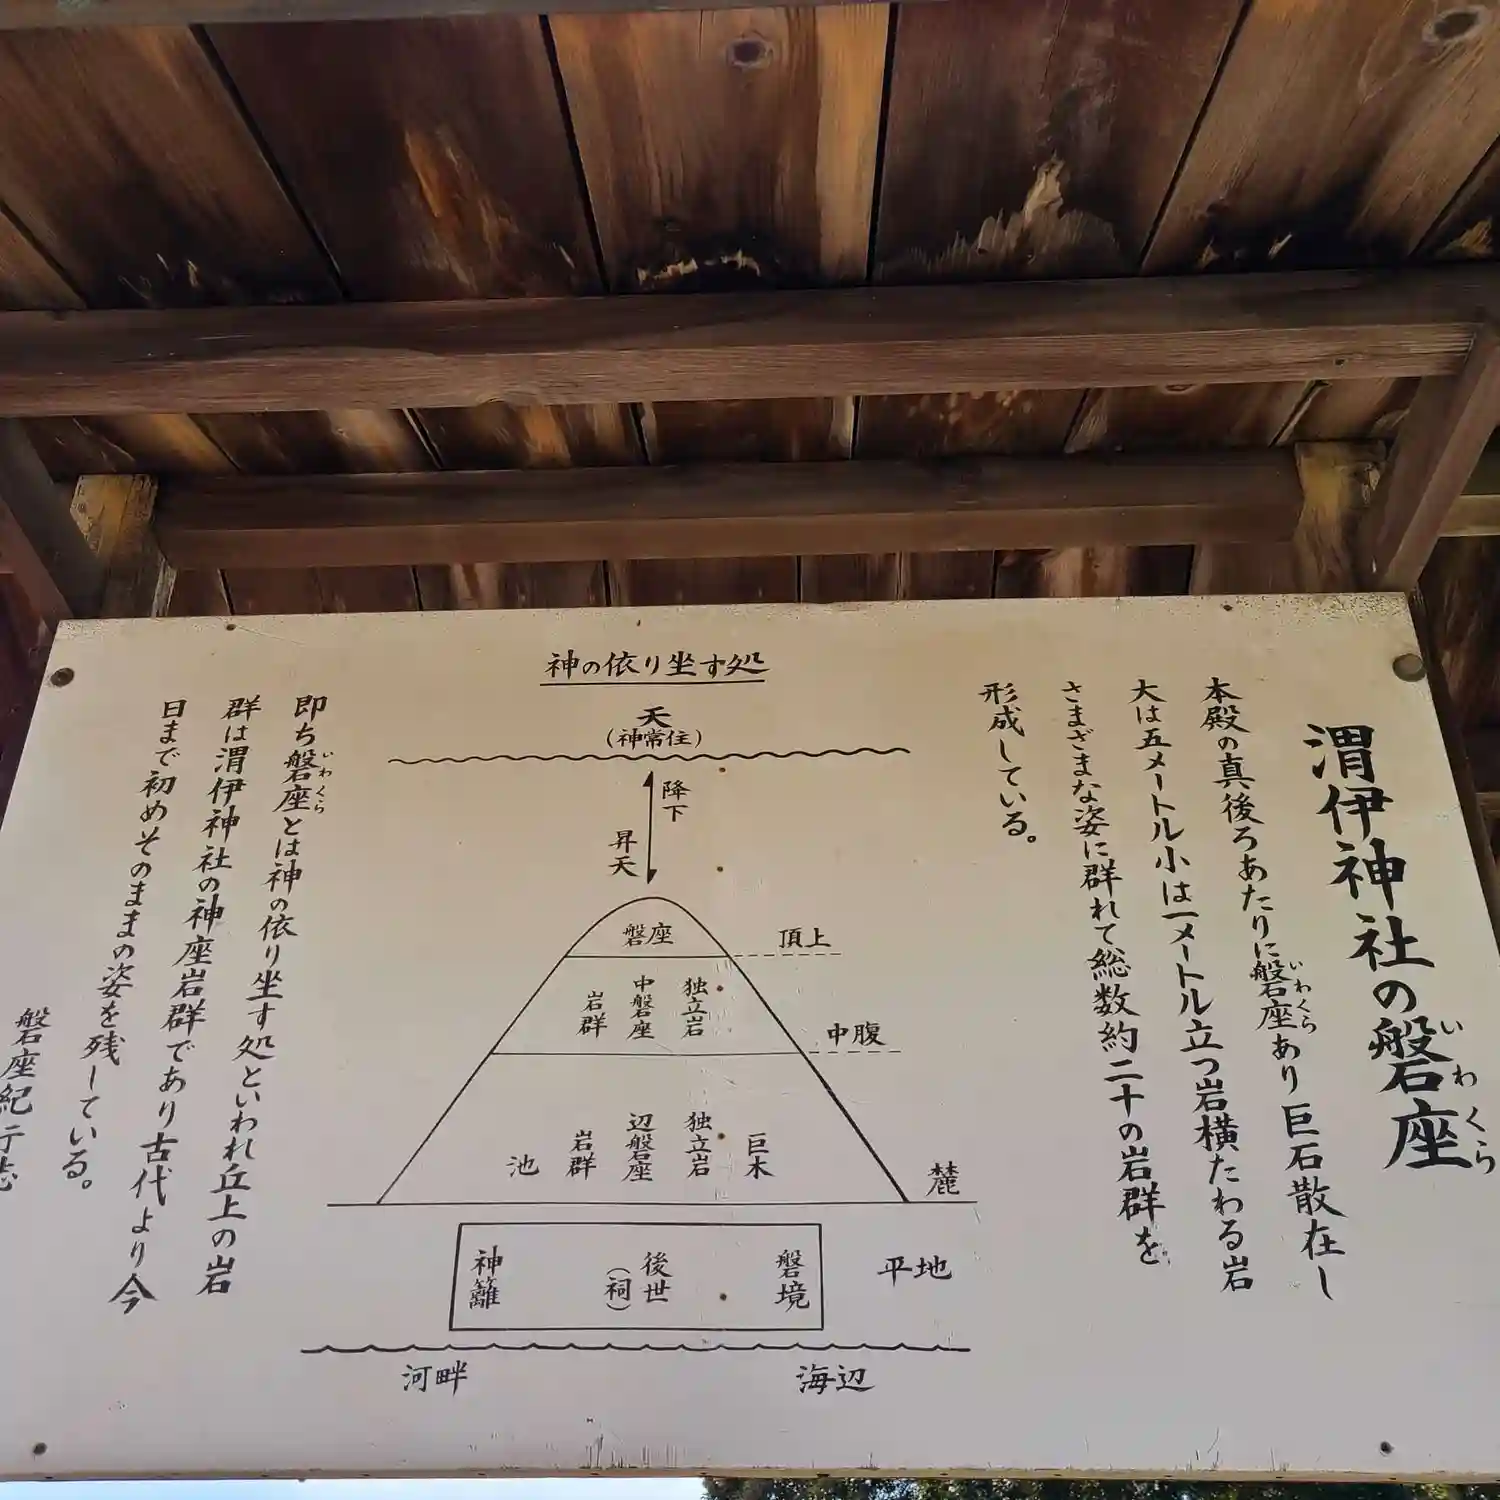 渭伊神社の磐座
いわくら
本殿の真後ろあたりに磐座あり巨石散在し
いわくら
大は五メートル小は一メートル立つ岩横たわる岩
さまざまな姿に群れて総数約二十の岩群を
形成している。
神の依り坐す処
天
(神常住)
降下
昇天
磐座
頂上
独立岩
中磐座
岩群
中腹
巨木
独立岩
辺磐座
岩群
池
麓
磐境
後世
(祠)
神籬
平地
河畔
海辺
即ち磐座とは神の依り坐す処といわれ丘上の岩
いわくら
群は渭伊神社の神座岩群であり古代より今
日まで初めそのままの姿を残している。
磐座紀行誌